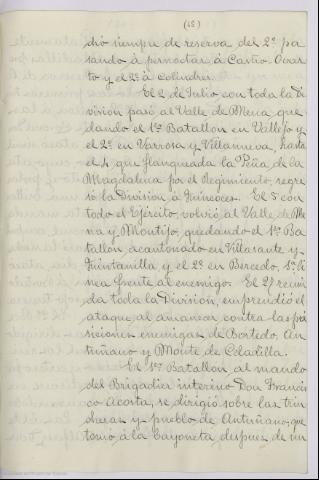 (48)
dió siempre de reserva del 2º pa
sando á pernoctar á Castro Ovar
to y el 2º á Colindres.
El 2 de Julio con toda la Di
visión pasó al Valle de Mena que
dando el 1er Batallon en Vallejo y
el 2º en Varrosa y Villanueva, hasta
el 4 que flanqueada la Peña de la
Magdalena por el Regimiento, regre
só la División á Quincoces. El 5 con
todo el Ejército, volvió al Valle de Me
na y Montijo, quedando el 1er Ba
tallon acantonado en Villasante y
Quintanilla y el 2º en Bercedo, 1ª lí
nea frente al enemigo. El 27 reuni
da toda la División, emprendió el
ataque al amanecer contra las po
siciones enemigas de Bortedo, An
tuñano y Monte de Celadilla.
El 1er Batallon al mando
del Brigadier interino Don Francis
co Acosta, se dirigió sobre las trin
cheras y pueblo de Antuñano, que
tomó á la bayoneta, despues de un